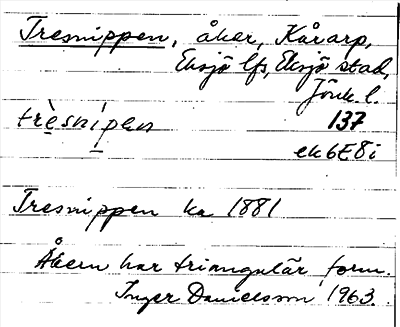 Tresnippen, åker, Kårarp,
Eksjö lfs, Eksjö stad,
Jönk. l.
trèsnipen 137
ek 6E8i
Tresnippen ka 1881
Åkern har triangulär form.
Inger Danielsson 1963.